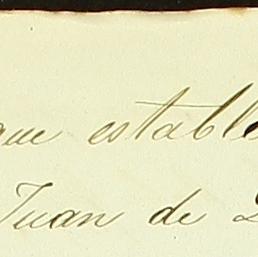 que estable
Juan de